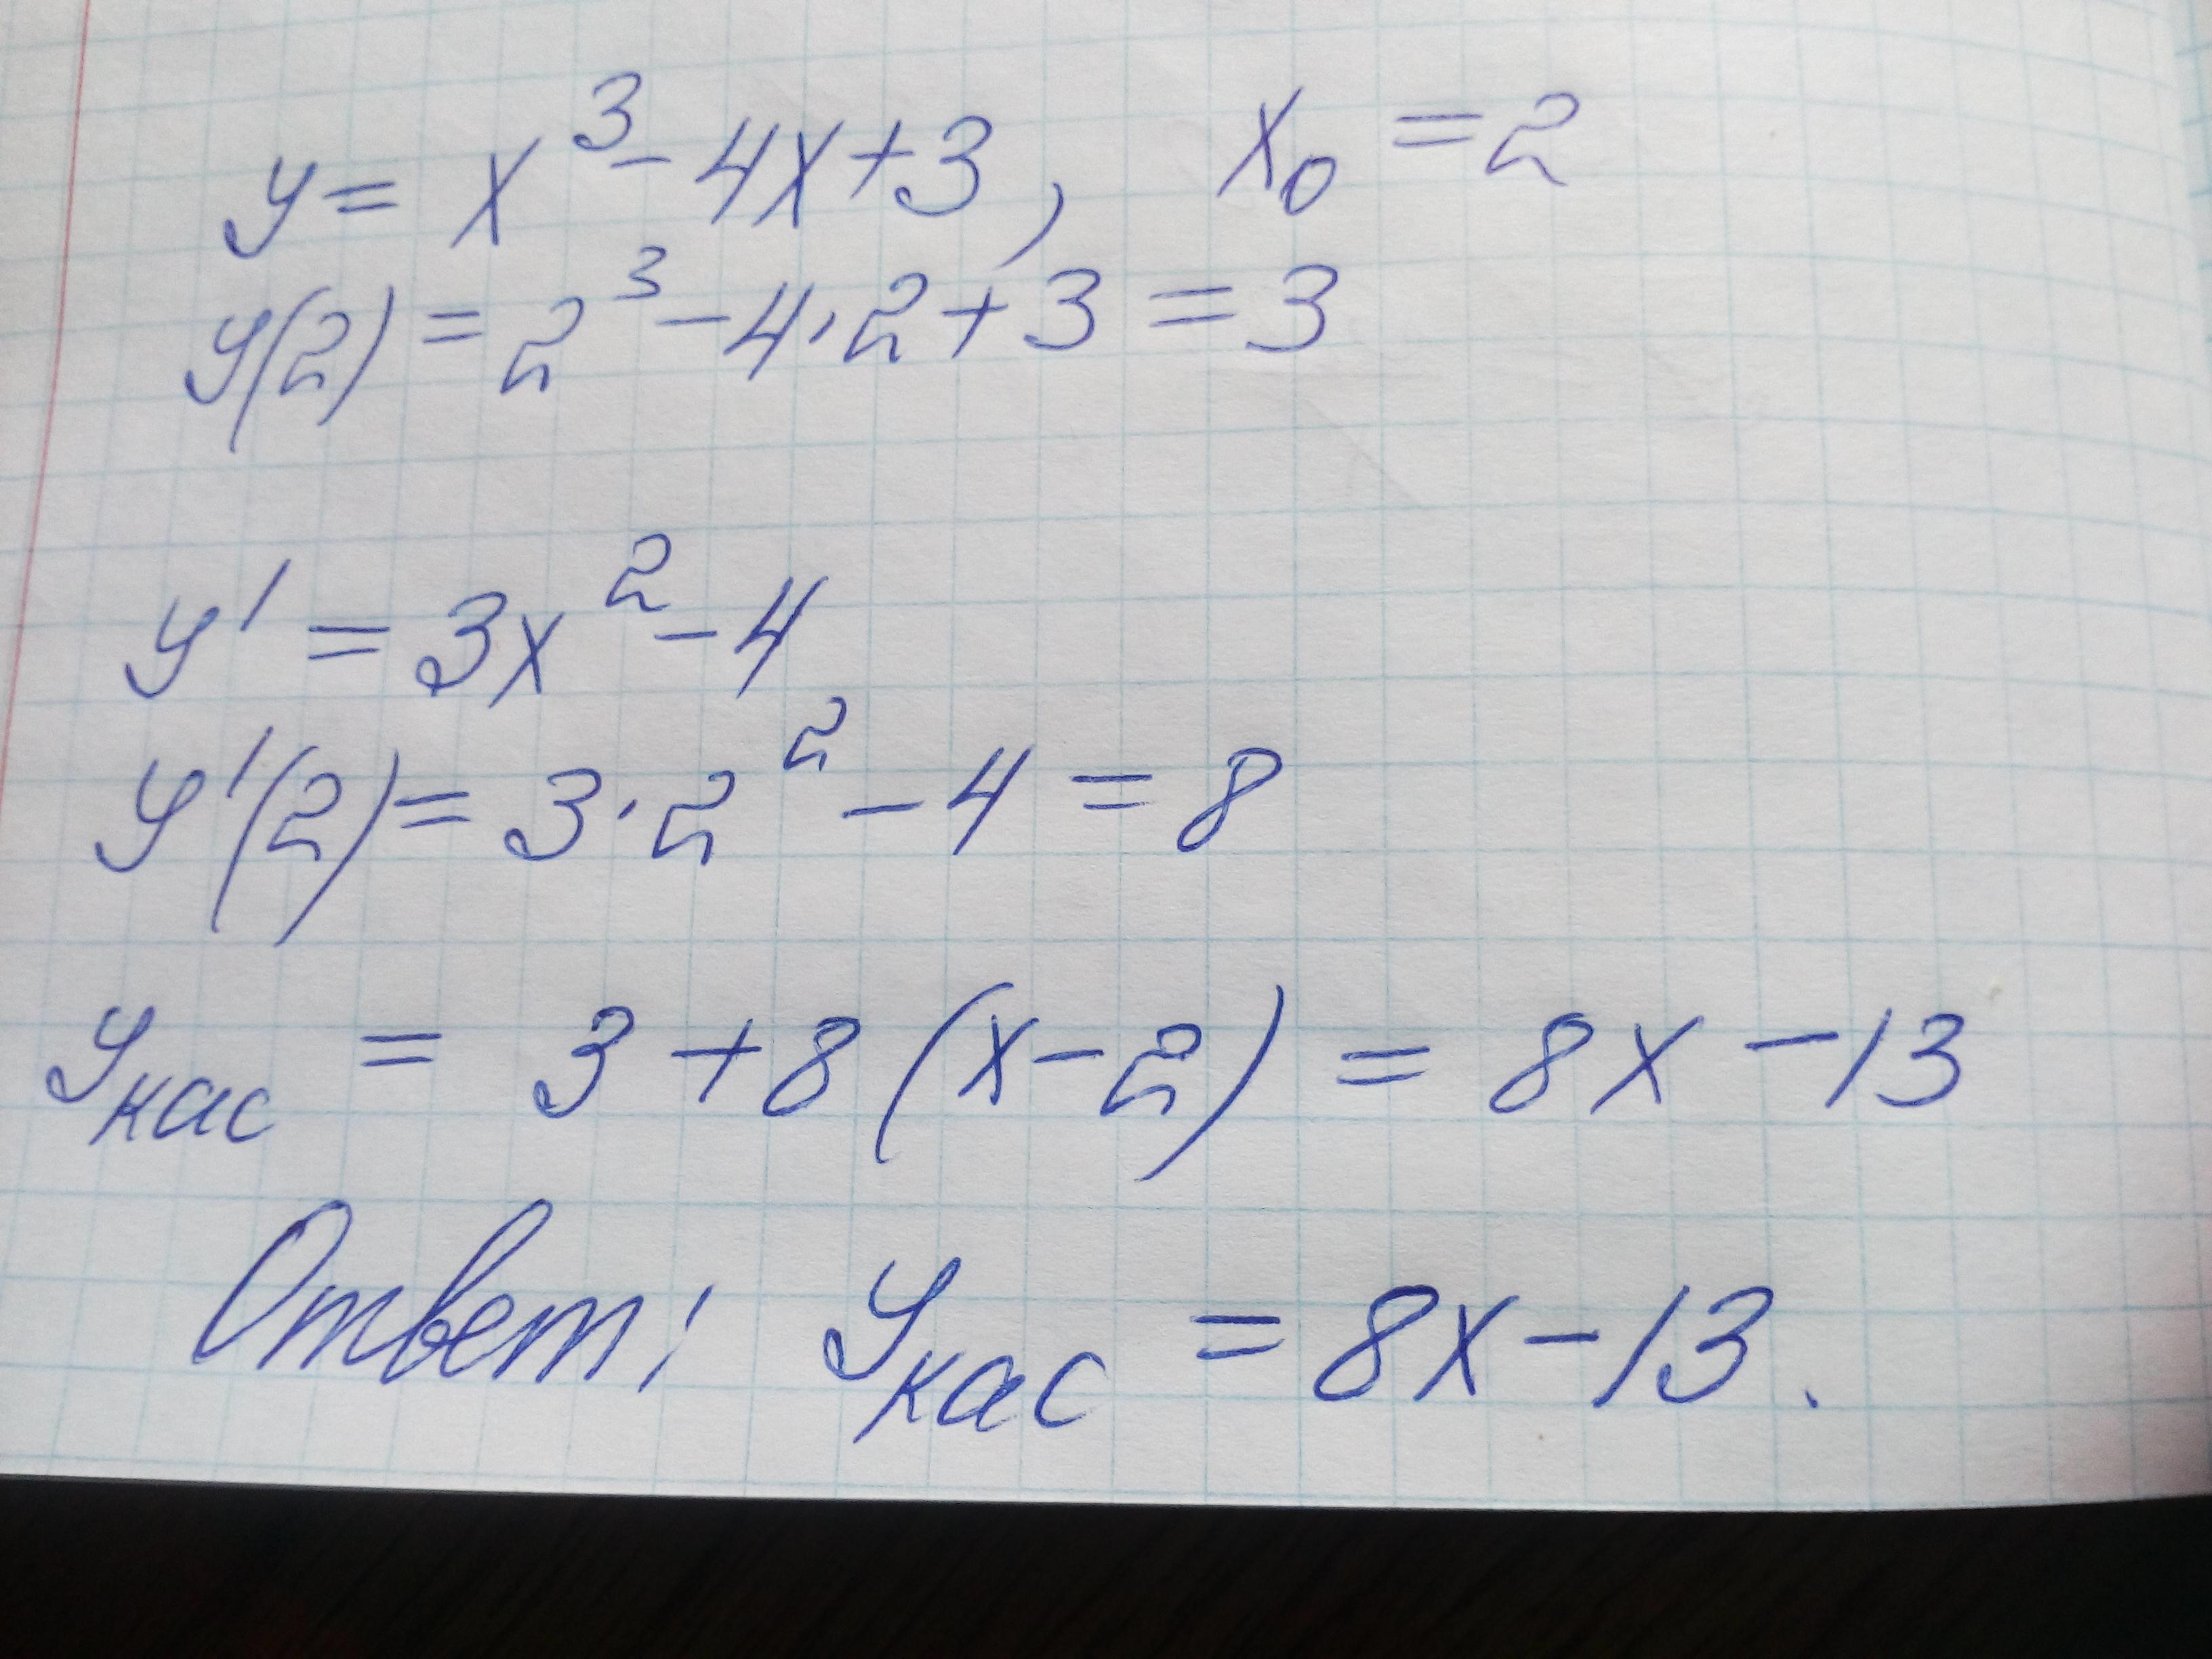 y = x³ - 4x + 3, x₀ = 2
y(2) = 2³ - 4·2 + 3 = 3
y' = 3x² - 4
y'(2) = 3·2² - 4 = 8
yкас = 3 + 8(x - 2) = 8x - 13
Ответ: yкас = 8x - 13.